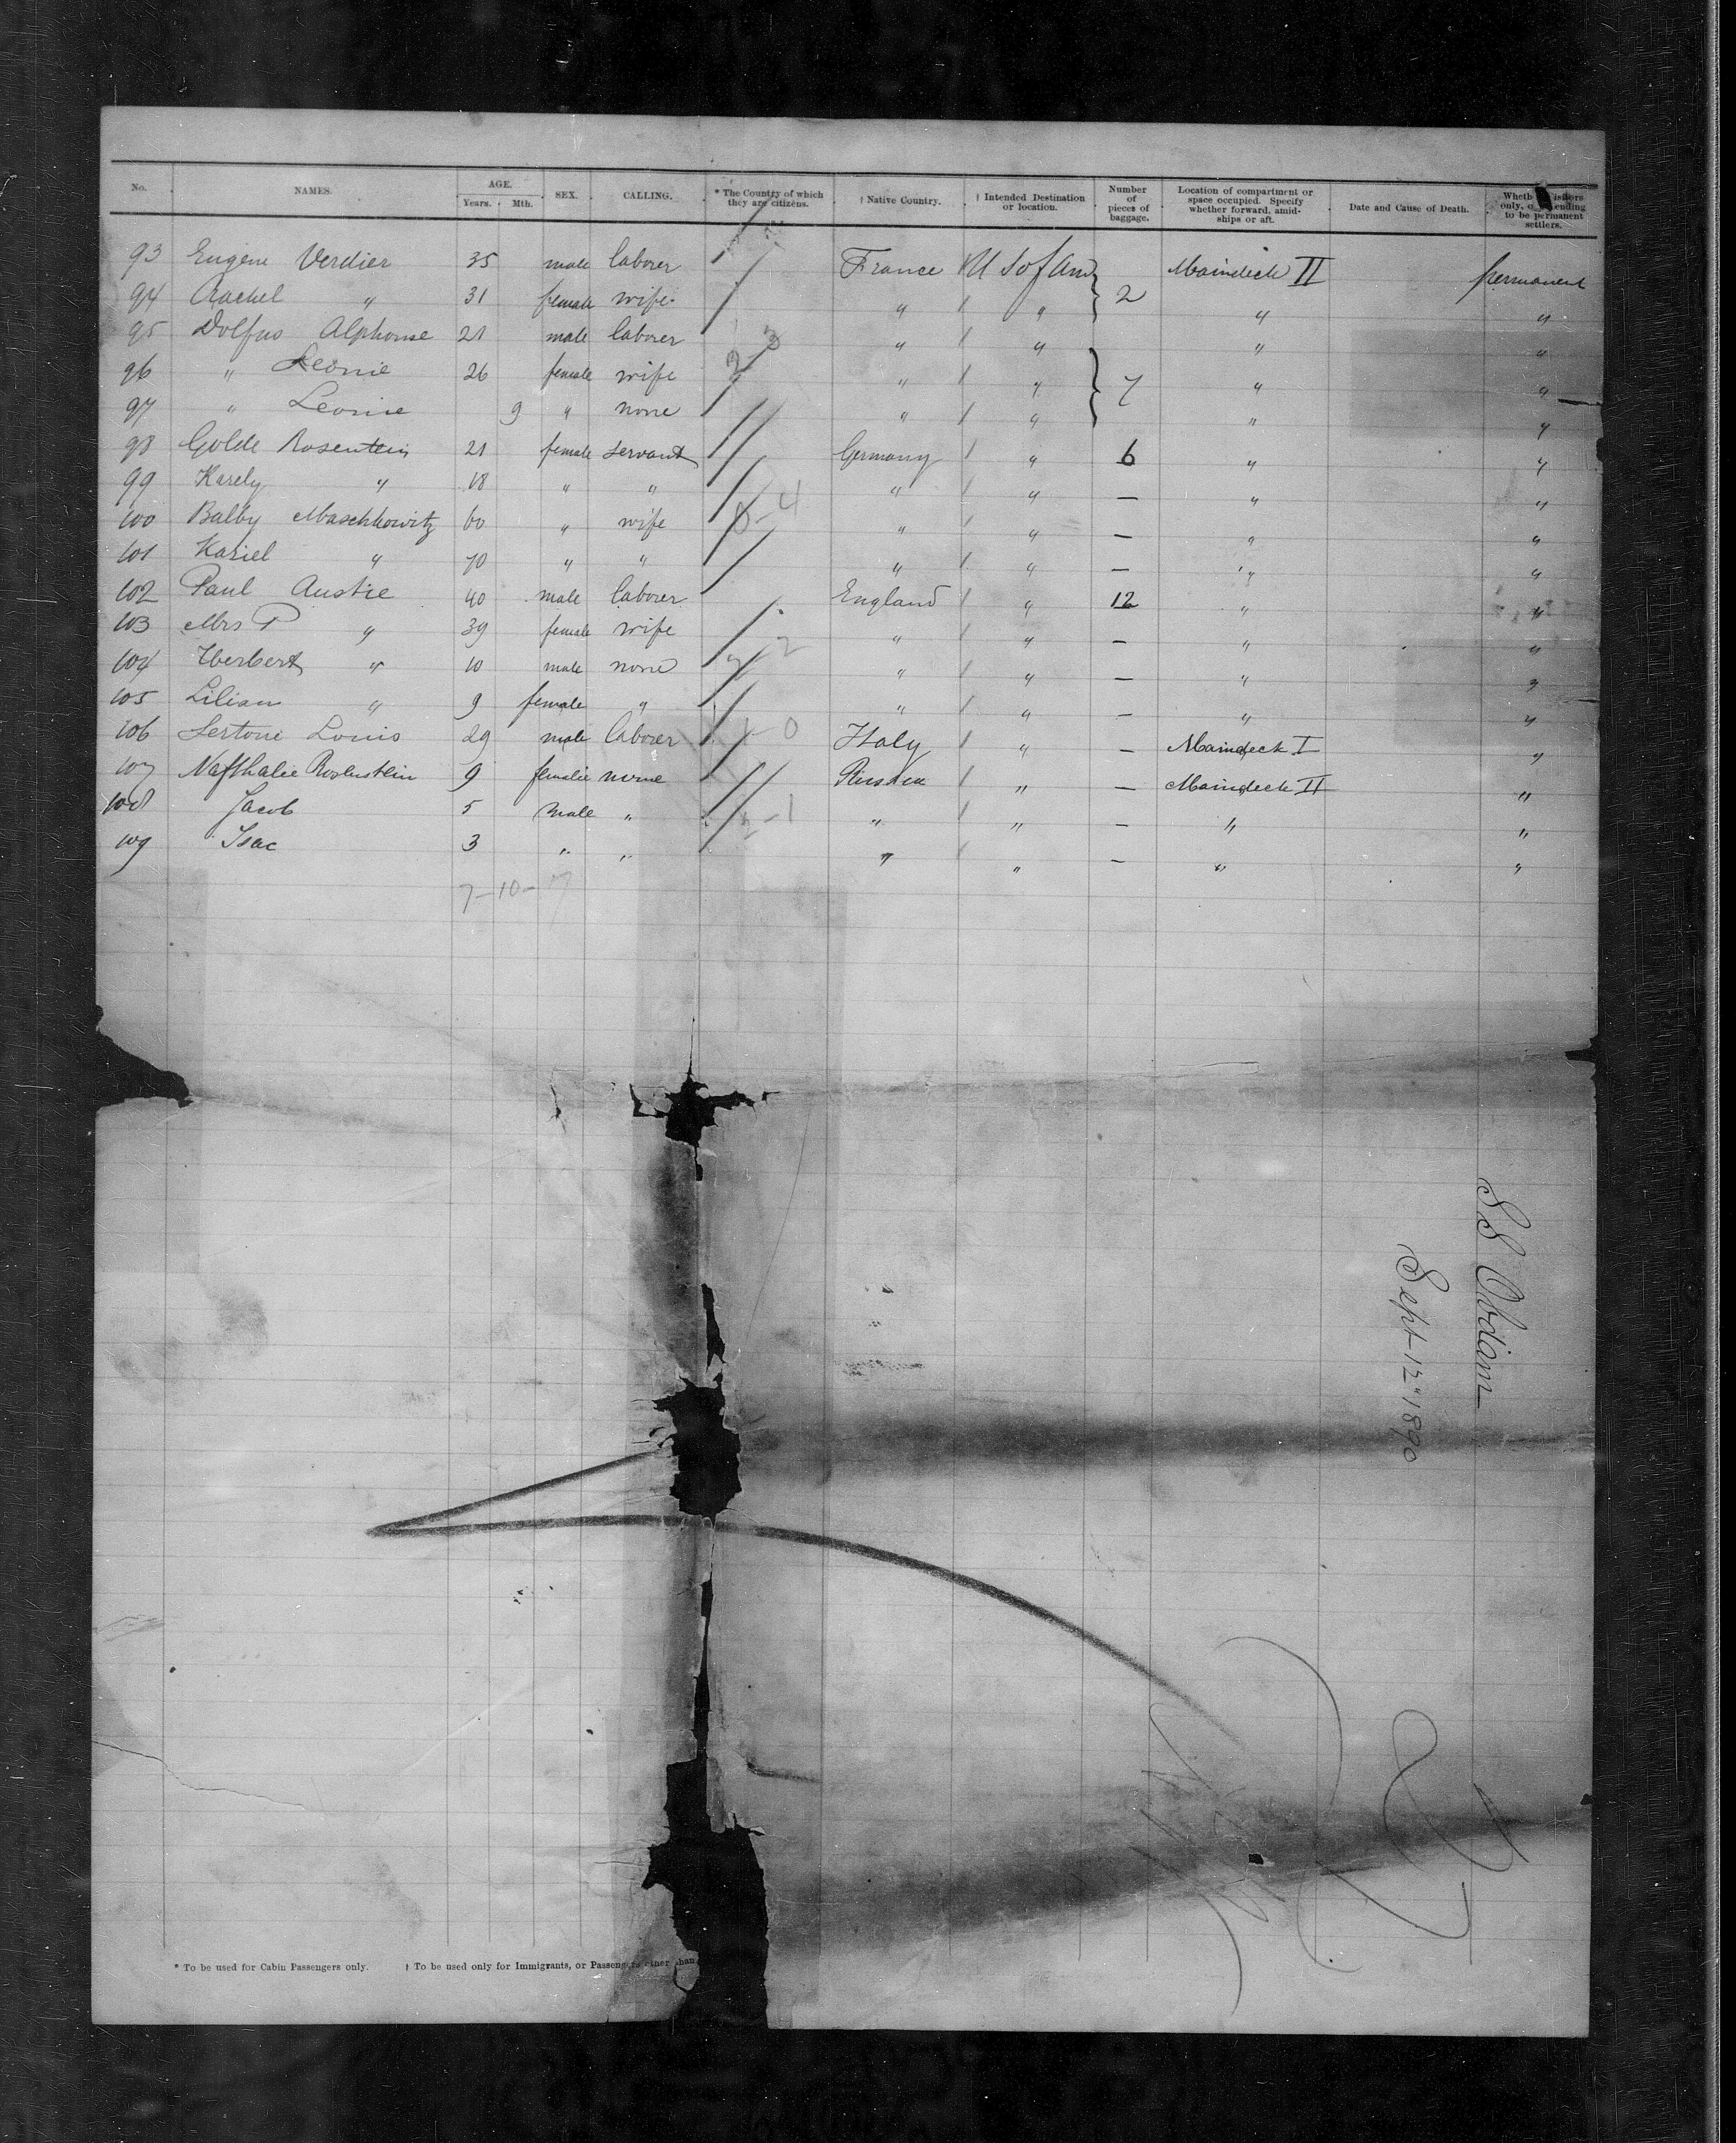 No. NAMES. AGE. Years. Mth. SEX. CALLING. * The Country of which they are citizens. † Native Country. † Intended Destination or location. Number of pieces of baggage. Location of compartment or space occupied. Specify whether forward, amidships or aft. Date and Cause of Death. Wheth isitors only, o ending to be permanent settlers.
93 Eugene Verdier 35 male laborer France U S of Am 2 Maindeck II permanent
94 Rachel " 31 female wife " " " "
95 Dolfus Alphonse 21 male laborer " " " "
96 " Leonie 26 female wife " " 7 " "
97 " Leonie 9 " none " " " "
98 Golde Rosentein 21 female servant Germany " 6 " "
99 Karely " 18 " " " " — " "
100 Balby Maschkowitz 60 " wife " " — " "
101 Kasiel " 70 " " " " — " "
102 Paul Austie 40 male laborer England " 12 " "
103 Mrs P " 39 female wife " " — " "
104 Herbert " 10 male none " " — " "
105 Lilian " 9 female " " " — " "
106 Sertone Louis 29 male laborer Italy " — Maindeck I "
107 Nafthalie Roslnstein 9 female none Russia " — Maindeck II "
108 Jacob 5 male " " " — " "
109 Isac 3 " " " " — " "
7-10-7
SS Obdam
Sept 12" 1890
* To be used for Cabin Passengers only. † To be used only for Immigrants, or Passengers other than